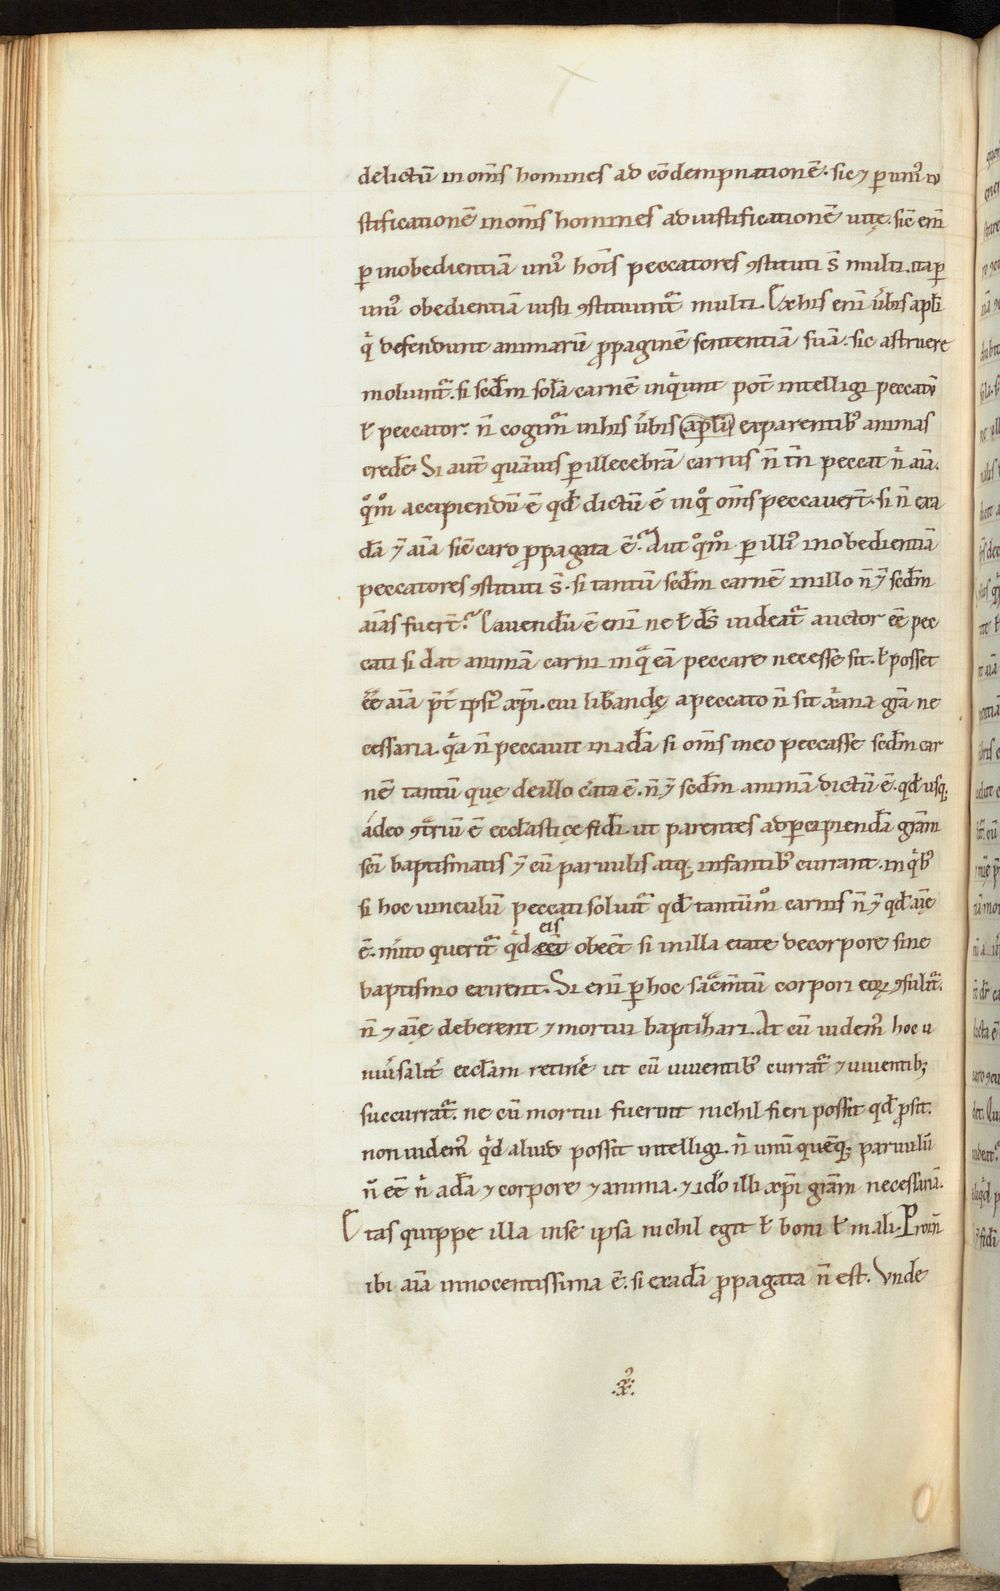 delictū in om̄s homines ad cōdempnationē. sic ⁊ ꝑ uniꝰ iu
stificationē in om̄s homines ad iustificationē uitę. sic̄ enī
ꝑ inobedientiā uniꝰ hoīs peccatores ꝯstituti s̄ multi. ita ꝑ
uniꝰ obedientiā iusti ꝯstituunt᷑ multi. Ex his enī ūbis apl̄i
qͥ defendunt animarū ꝓpaginē sententiā suā. sic astruere
moliunt᷑. si sed̄m solā carnē inqͥunt pot̄ intelligi peccatū
ł peccator. n̄ cogim᷑ in his ūbis apl̄i ex parentibꝰ animas
crede᷑. Si aut̄ quāuis ꝑ illecebrā carnis n̄ tn̄ peccat nͥ aīa.
qͦmͦ accipiendū ē qd̄ dictū ē in qͦ om̄s peccauer̄t. si n̄ ex a
dā ⁊̄ aīa sic̄ caro ꝓpagata ē. Aut qͦmͦ ꝑ illiꝰ inobedientiā
peccatores ꝯstituti s̄. si tantū sed̄m carnē in illo n̄ ⁊̄ sed̄m
aīas fuer̄t. Cauendū ē enī ne ł d̄s uideat᷑ auctor ēē pec
cati si dat animā carni in qᵃ eā peccare necesse sit. ł posset
ēē aīa p̄t̄ ipsiꝰ xp̄i. cui liƀandę a peccato n̄ sit xͬana gr̄a ne
cessaria. qͥa n̄ peccauit in adā si om̄s in eo peccasse sed̄m car
nē tantū que de illo cͬata ē. n̄ ⁊̄ sed̄m animā dictū ē. qd̄ usq;
adeo ꝯtͬriū ē eccl̄asticę fidei. ut parentes ad ꝑcipiendā gr̄am
sc̄i baptismatis ⁊̄ cū paruulis atq; infantibꝰ currant. in qͥbꝰ
si hoc uinculū peccati soluit᷑ qd̄ tantūmͦ carnis n̄ ⁊̄ qd̄ aīę
ē. mͬito querit᷑ qͥd eis obeēt si in illa etate de corpore sine
baptismo exirent. Si enī ꝑ hoc sacͣmtū corpori eoꝝ ꝯsulit᷑.
n̄ ⁊ aīę deberent ⁊ mortui baptizari. At cū uidem᷑ hoc u
niuͥsalit̄ eccl̄am retine᷑ ut cū uiuentibꝰ currat᷑ ⁊ uiuentib;
succurrat᷑. ne cū mortui fuerint nichil fieri possit qd̄ ꝓsit.
non uidem᷑ qͥd aliud possit intelligi. nͥ unū quēq; paruulū
n̄ ēē nͥ adā ⁊ corpore ⁊ anima. ⁊ idō illi xp̄i gr̄am necessariā.
Etas quippe illa in se ipsa nichil egit ł boni ł mali. Proin̄
ibi aīa innocentissima ē. si ex adā ꝓpagata n̄ est. Vnde
.x̊.